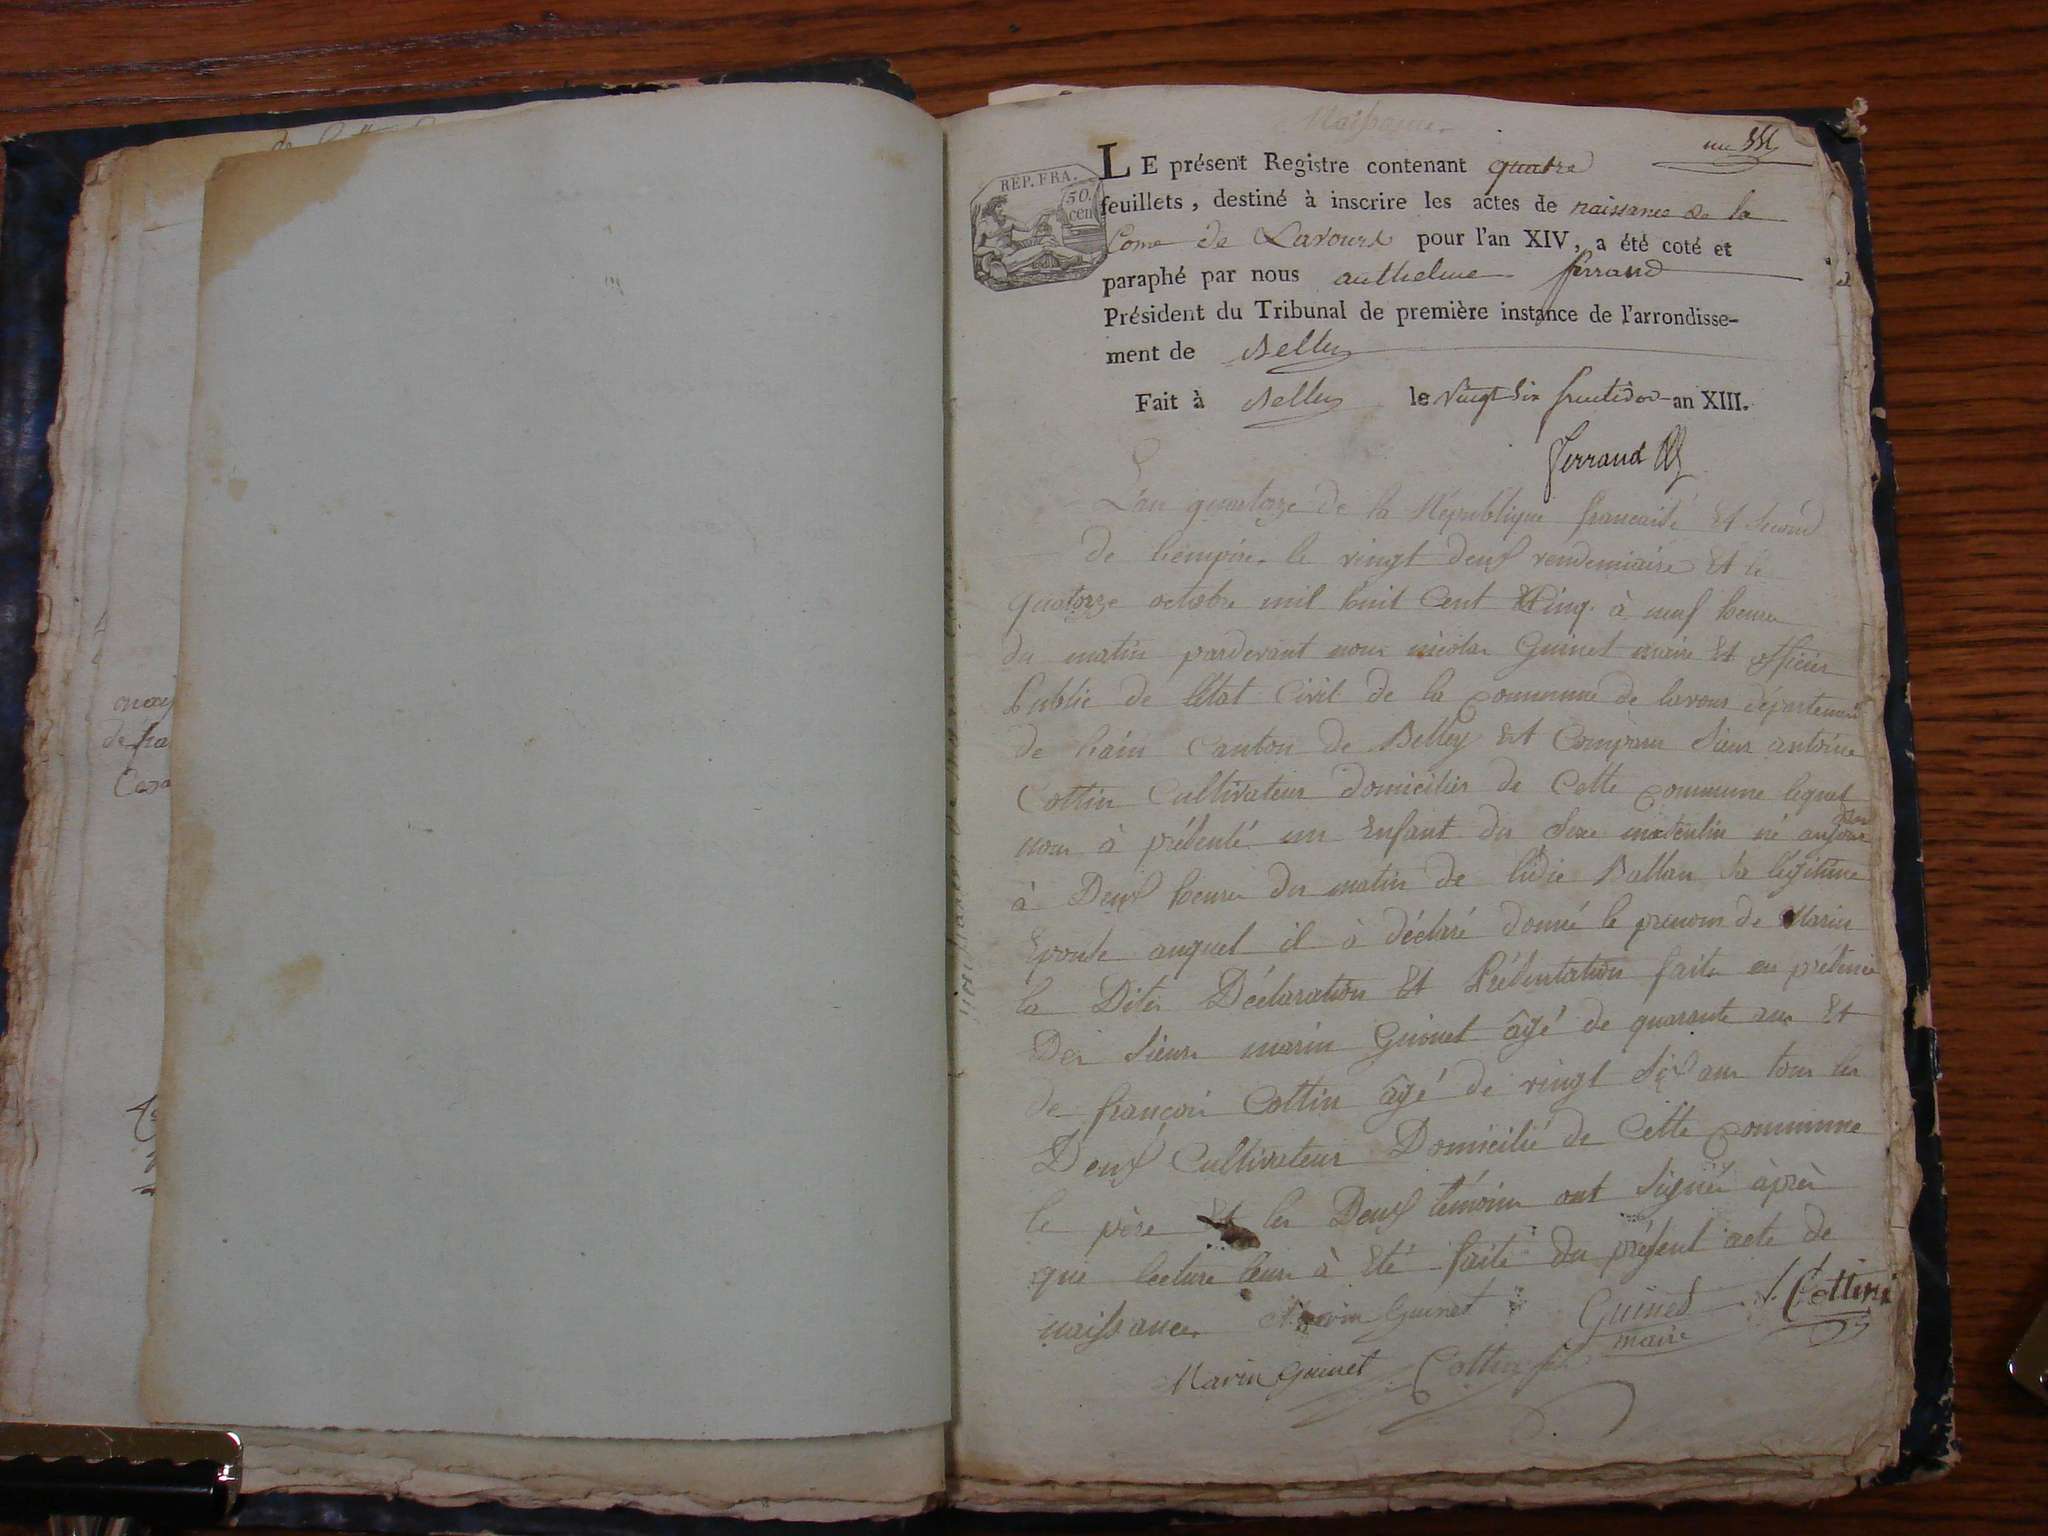 Naissance.
REP. FRA.
50.
cen
LE présent Registre contenant quatre
feuillets, destiné à inscrire les actes de naissance de la
Come de Lavours pour l'an XIV, a été coté et
paraphé par nous anthelme ferrand
Président du Tribunal de première instance de l'arrondisse-
ment de Belley
Fait à Belley le vingt six fructidor an XIII.
ferrand
L'an quatorze de la République francaise Et Second
de lempire le vingt deux vendemiaire Et le
quatorze octobre mil huit Cent Cinq à neuf heures
du matin pardevant nous nicolas Guinet maire Et officier
Public de létat Civil de la commune de lavours département
de lain Canton de Belley Est Comparu Sieur antoine
Cottin Cultivateur domicilier de Cette commune lequel
nous à présenté un Enfant du Sexe masculin né aujourdhui
à Deux heures du matin de lidie Ballan Sa légitime
Epouse auquel il à déclaré donné le prenom de Marin
la Dites Déclaration Et Présentation faite en présence
Des Sieurs marin Guinet âgé de quarante ans Et
de françois Cottin âgé de vingt Six ans tous les
Deux Cultivateurs Domicilié de Cette commune
le père Et les Deux témoins ont Signés après
que lecture leurs à Eté faite du présent acte de
naissances Marin Guinet Guinet Cottin
maire
Marin Guinet Cottin